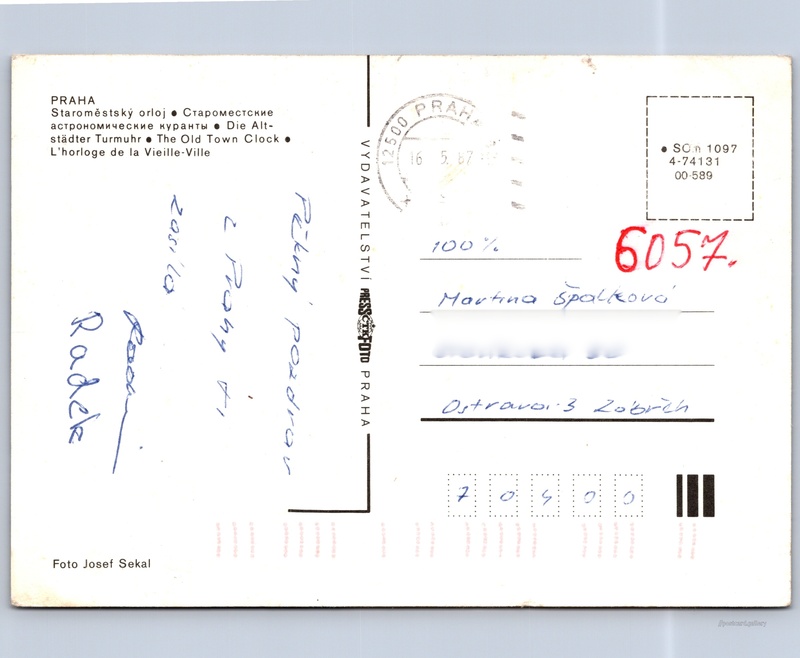 PRAHA
Staroměstský orloj ● Староместские
астрономические куранты ● Die Alt-
städter Turmuhr ● The Old Town Clock ●
L'horloge de la Vieille-Ville
Pěkný pozdrav
z Prahy ti
zasílá
Radek
Foto Josef Sekal
VYDAVATELSTVÍ PRESSFOTO PRAHA
ČTK
12500 PRAHA
16. 5. 87
● SČn 1097
4-74131
00-589
6057.
100%
Martina Špalková
Ostrava-3 Zábřeh
70400